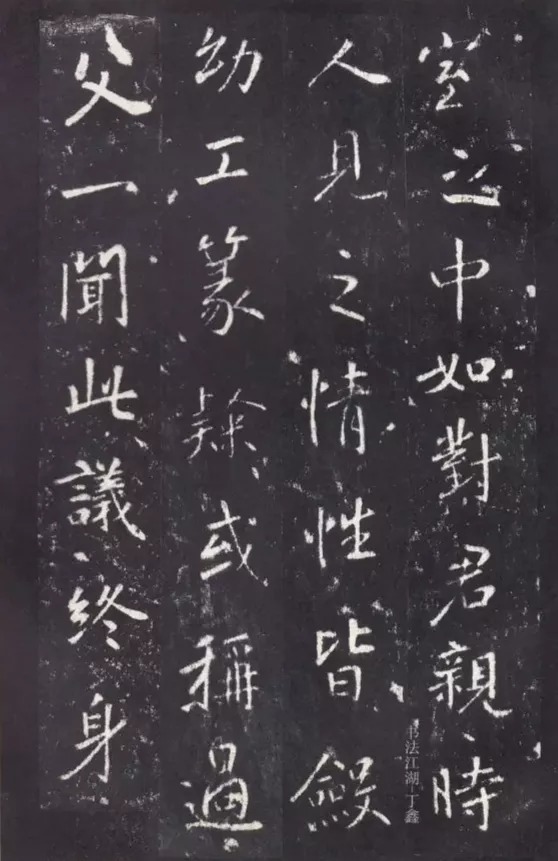 室之中如對君親時
人見之情性皆斂
幼工篆隷或稱過
父一聞此議終身
书法江湖 丁鑫